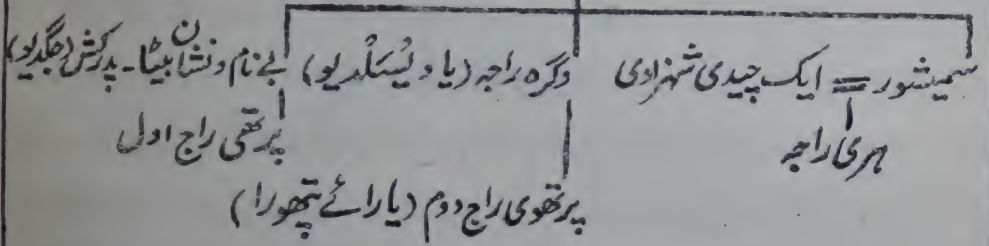 سمیشور = ایک چیدی شہزادی   وگرہ راجہ (یا ویسَلْدیو)   بے نام و نشان بیٹا۔ پدرکش (جگدیو)
ہری راجہ   پرتھی راج اول
پرتھوی راج دوم (یا رائے پتھورا)